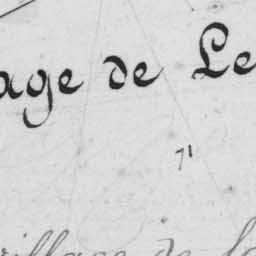 age de Le
71
village de la